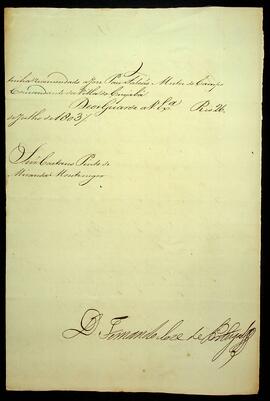 tenha recommendado a Joze Paes Falcão Mestre de Campo
Commandante da Villa do Cuyabá
Deos Guarde a V. Exª. Rio 26
de Julho de 1803
Snr. Caetano Pinto de
Miranda Montenegro
D. Fernando Jose de Portugal